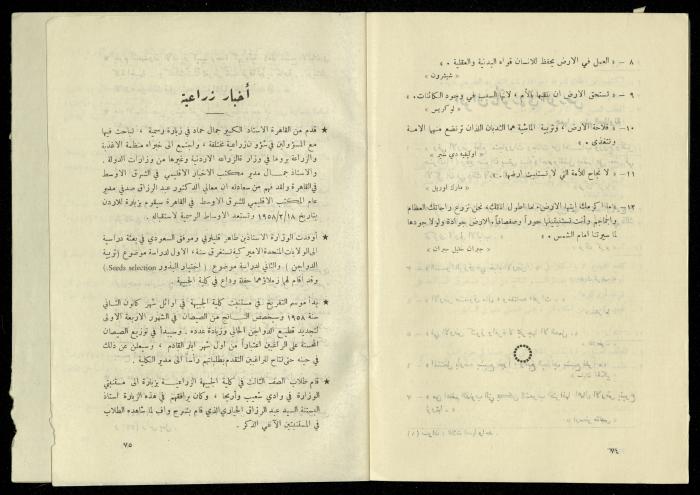 ٨ – « العمل في الارض يحفظ للانسان قواه البدنية والعقلية » .
« شيشرون »
٩ – « تستحق الارض ان نلقبها بالأم ، لانها السبب في وجود الكائنات » .
« لوكريس »
١٠ – « فلاحة الارض ، وتربية الماشية هما الثديان اللذان ترضع منهما الامة
وتتغذى »
« اوليفيه دي سير »
١١ – « لا نجاح للأمة التي لا تستنبت ارضها » .
« مارك اوريل »
١٢ – « ما اكرمك ايتها الارض، ما اطول اناتك، نحن نزوع راحاتك العظام
والجماجم وأنت تستنبتينها حوراً وصفصافاً، الارض جوادة ولولا جودها
لما سيرتنا امام الشمس » .
« جبران خليل جبران »
٧٤
أخبار زراعية
★ قدم من القاهرة الاستاذ الكبير جمال حماد في زيارة رسمية ، تباحث فيها
مع المسؤولين في شؤون زراعية مختلفة ، واجتمع الى خبراء منظمة الاغذية
والزراعة بروما في وزارة الزراعة الاردنية وغيرها من وزارات الدولة .
والاستاذ جمال مدير مكتب الاخبار الاقليمي في الشرق الاوسط
في القاهرة ولقد فهم من سعادته ان معالي الدكتور عبد الرزاق صدقي مدير
عام المكتب الاقليمي للشرق الاوسط في القاهرة سيقوم بزيارة للاردن
بتاريخ ١٩٥٨/٢/١٨ وتستعد الاوساط الرسمية لاستقباله .
★ أوفدت الوزارة الاستاذين طاهر قليلوبي وموفق السعودي في بعثة دراسية
الى الولايات المتحدة الاميركية تستغرق سنة، الاول لدراسة موضوع (تربية
الدواجن ) والثاني لدراسة موضوع ( اختيار البذور Seeds selection )
وقد أقام لهما زملاؤهما حفلة وداع في كلية الجبيهة
★ بدأ موسم التفريخ في مستنبت كلية الجبيهة في اوائل شهر كانون الثاني
سنة ١٩٥٨ وسيخصص الناتج من الصيصان في الشهور الاربعة الاولى
لتجديد قطيع الدواجن الحالي وزيادة عدده . وسيبدأ في توزيع الصيصان
المحسنة على الراغبين اعتباراً من اول شهر ايار القادم ، وسيعلن عن ذلك
في حينه حتى تتاح للراغبين التقدم بطلباتهم رأساً الى مدير الكلية .
★ قام طلاب الصف الثالث في كلية الجبيهة الزراعية بزيارة الى مستنبتي
الوزارة في وادي شعيب وأريحا ، وكان يرافقهم في هذه الزيارة استاذ
البستنة السيد عبد الرزاق الحجازي الذي قام بشرح واف لما شاهده الطلاب
في المستنبتين الآنفي الذكر .
٧٥